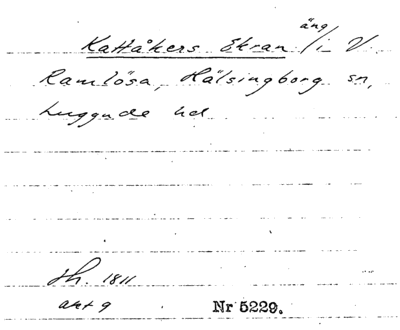 Kattåkers Ekran äng / i V.
Ramlösa, Hälsingborg sn,
Luggude hd
Sh. 1811
akt 9 Nr 5229.